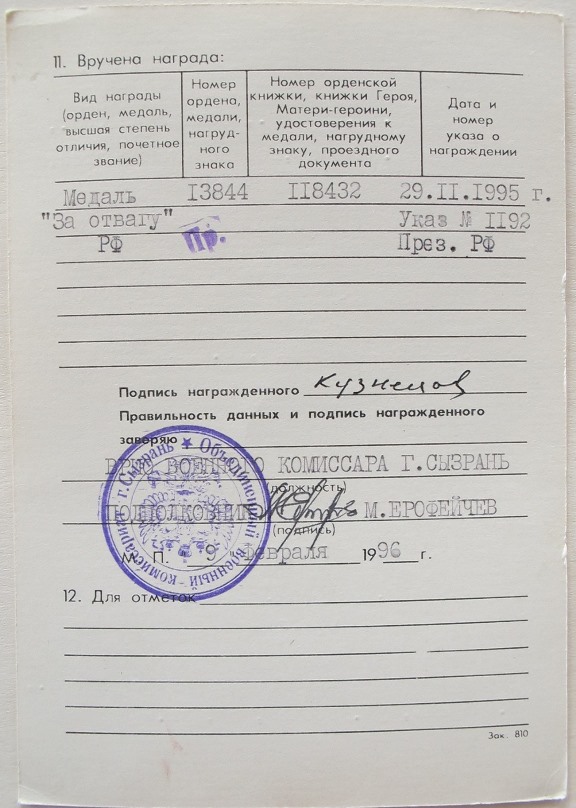 11. Вручена награда:
Вид награды (орден, медаль, высшая степень отличия, почетное звание)
Номер ордена, медали, нагруд- ного знака
Номер орденской книжки, книжки Героя, Матери-героини, удостоверения к медали, нагрудному знаку, проездного документа
Дата и номер указа о награждении
Медаль I3844 II8432 29.II.I995 г.
"За отвагу" Указ № II92
РФ Пр. През. РФ
Подпись награжденного Кузнецов
Правильность данных и подпись награжденного
заверяю
ВРИО ВОЕННОГО КОМИССАРА Г.СЫЗРАНЬ
(должность)
ПОДПОЛКОВНИК М.ЕРОФЕЙЧЕВ
(подпись)
М. П. 9 февраля 1996 г.
★ Объединенный военный комиссариат г. Сызрань
12. Для отметок
Зак. 810